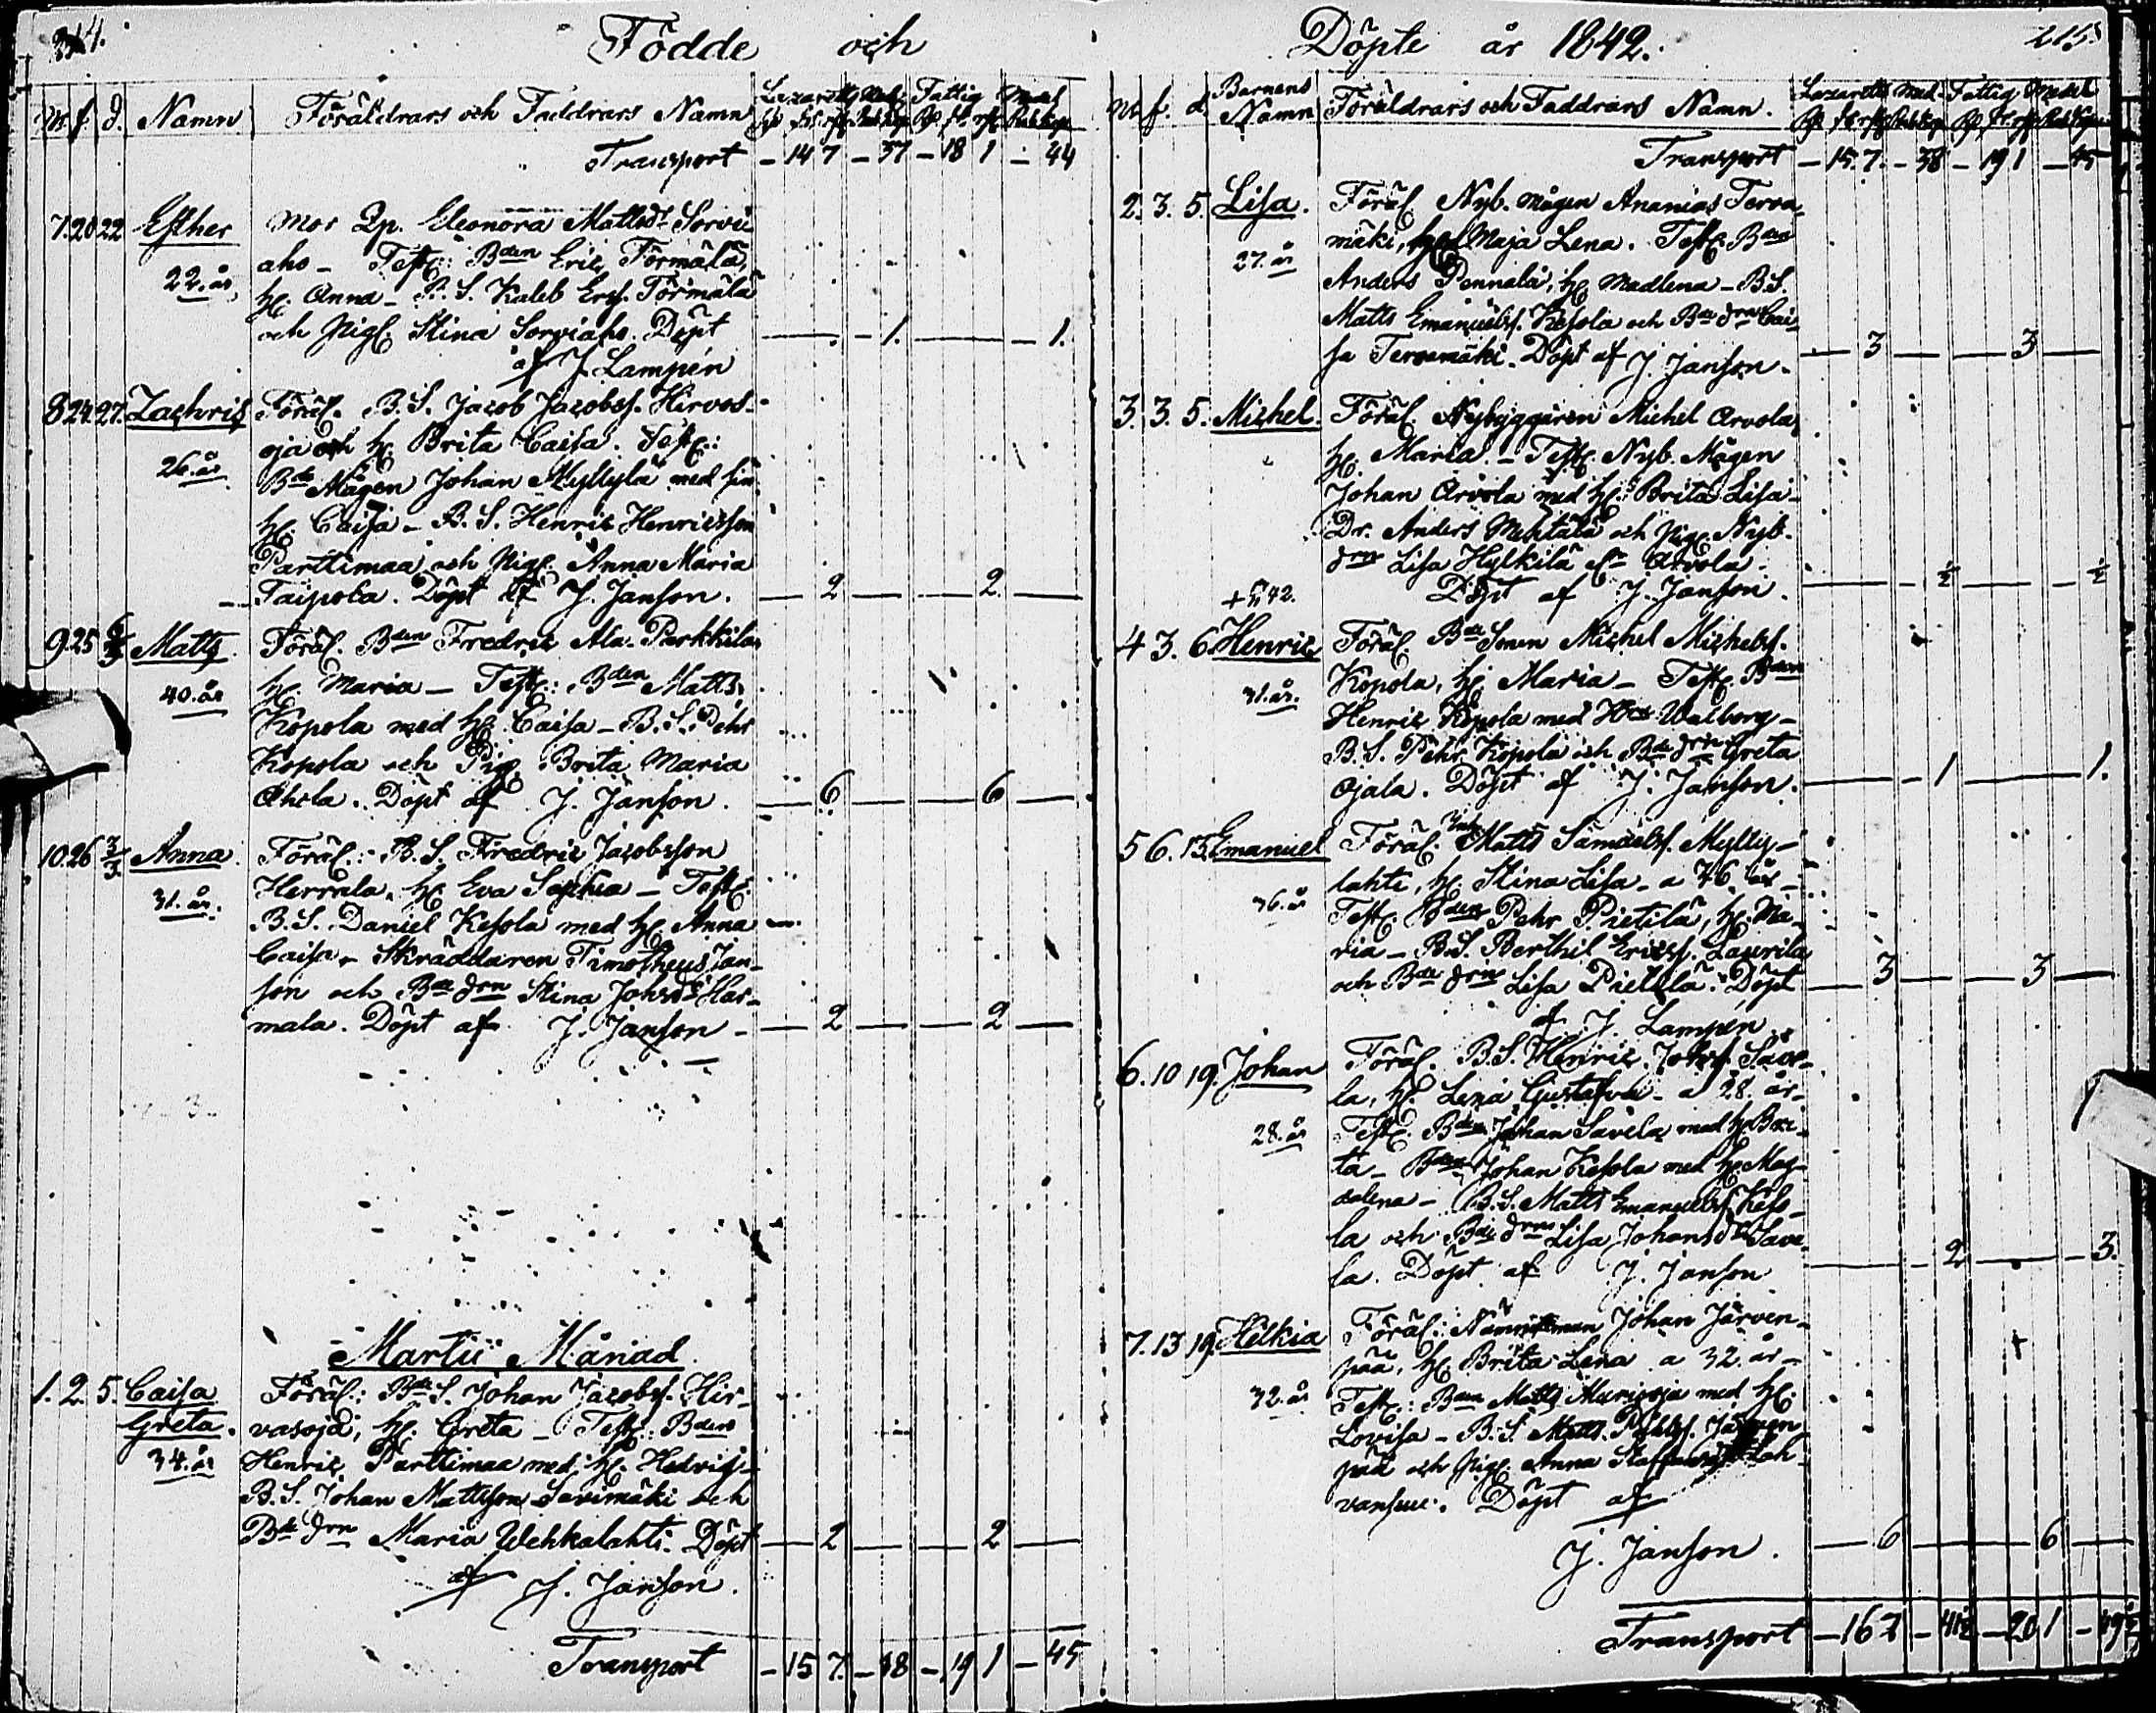 314.
Födde och
N. f. d. Namn Föräldrars och Faddrars Namn Lazaretts Med. Fattig Medel
Transport - 14 7 - 37 - 18 1 - 44
7. 20 22 Esther Mor Qp. Eleonora Mattsdr Sorvi
22. år aho - Test: Bden Eric Törmälä,
h. Anna - B. S. Kaleb Ers. Törmälä
och Pig. Stina Sorviaho. Döpt — 1. — 1.
af J. Lampén
8 24. 27. Zachris Föräl. B. S. Jacob Jacobss. Hirvas-
oja och h. Brita Caisa. Test:
26. år Bde Mågen Johan Myllylä med sin
h. Caisa - B. S. Henric Henricsson
Parttimaa och Pig. Anna Maria
Taipola. Döpt af J. Janson. — 2 — 2 —
9. 25 Matts Föräl. Bden Fredric Ala-Parkkila,
40. år h. Maria - Test: Bden Matts
Kopola med h. Caisa - B. S. Pehr
Kopola och Pig. Brita Maria
Döpt af J. Janson. — 6 — 6 —
10. 26 3/3 Anna Föräl.: B. S. Fredric Jacobsson
31. år. Herrala, h. Eva Sophia - Test.
B. S. Daniel Kesola med h. Anna
Caisa - Skräddaren Timotheus Jan-
son och Bde drn Stina Johsdr Har-
mala. Döpt af J. Janson - — 2 — 2 —
Martii Månad.
1. 2. 5. Caisa Föräl.: Bde S. Johan Jacobss. Hir-
Greta. vasoja, h. Greta - Test: Bden
34. år Henric Parttimaa med h. Hedvig -
B. S. Johan Mattsson Savimäki och
Bde drn Maria Wehkalahti. Döpt — 2 — 2 —
af J. Janson.
Transport - 15 7. - 38 - 19 1 - 45
Döpte år 1842. 215.
N. f. d. Barnens Namn Föräldrars och Faddrars Namn. Lazaretts Med. Fattig Medel
Transport - 15. 7. - 38 - 19 1 - 45
2. 3. 5. Lisa. Föräl. Nyb. mågen Ananias Terva-
27. år mäki, h. Maja Lena. Test. Bden
Anders Pennala, h. Madlena - B. S.
Matts Emanuelss. Kesola och Bde drn Cai-
sa Tervamäki. Döpt af J. Janson. — 3 — 3 —
3. 3. 5. Michel. Föräl. Nybyggaren Michel Arvola,
h. Maria. - Test. Nyb. Mågen
Johan Arvola med h. Brita Lisa -
Dr. Anders Mehtälä och Pig. Nyb.
drn Lisa Hylkilä Arvola.
Döpt af J. Janson. — ½ — ½
4 3. 6. Henric Föräl. Bde Sonen Michel Michelss.
31. år. Kopola, h. Maria - Test. Bden
Henric Kopola med Walborg -
B. S. Pehr Kopola och Bde drn Greta
Ojala. Döpt af J. Janson. — 1 — 1.
5 6. 13. Emanuel Föräl. Matts Samuelss. Mylly-
lahti, h. Stina Lisa - a 36 år -
36. år Test. Bden Pehr Pietilä, h. Ma-
ria - B. S. Berthil Ericss. Laurila
och Bde drn Lisa Pietilä. Döpt — 3 — 3 —
af J. Lampén
6. 10 19. Johan Föräl. B. S. Henric Johss. Save-
la, h. Lena Gustafva - a 28. år -
28. år Test. Bden Johan Savela med h. Bri-
ta - Bden Johan Kesola med h. Mag-
dalena - B. S. Matts Emanuelss. Keso-
la och Bde drn Lisa Johansdr Save-
la. Döpt af J. Janson — 2 — 3.
7. 13 19. Helkia Föräl.: Nämndeman Johan Järven-
pää, h. Brita Lena a 32. år -
32. år Test.: Bden Matts Muurisoja med h.
Lovisa - B. S. Matts Järven
pää och Pig. Anna Lah-
Döpt af
J. Janson. — 6 — 6 —
Transport - 16 7 - 41½ - 20 1 - 49½